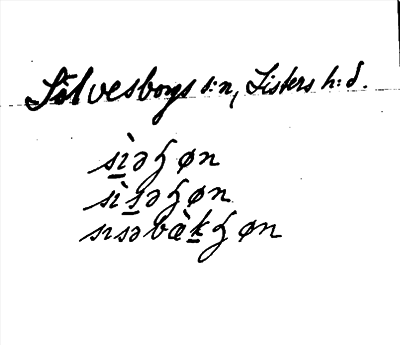 Sölvesborgs s:n, Listers h:d.
sìəʒøn
sìsəʒøn
sɪsəbàkʒøn